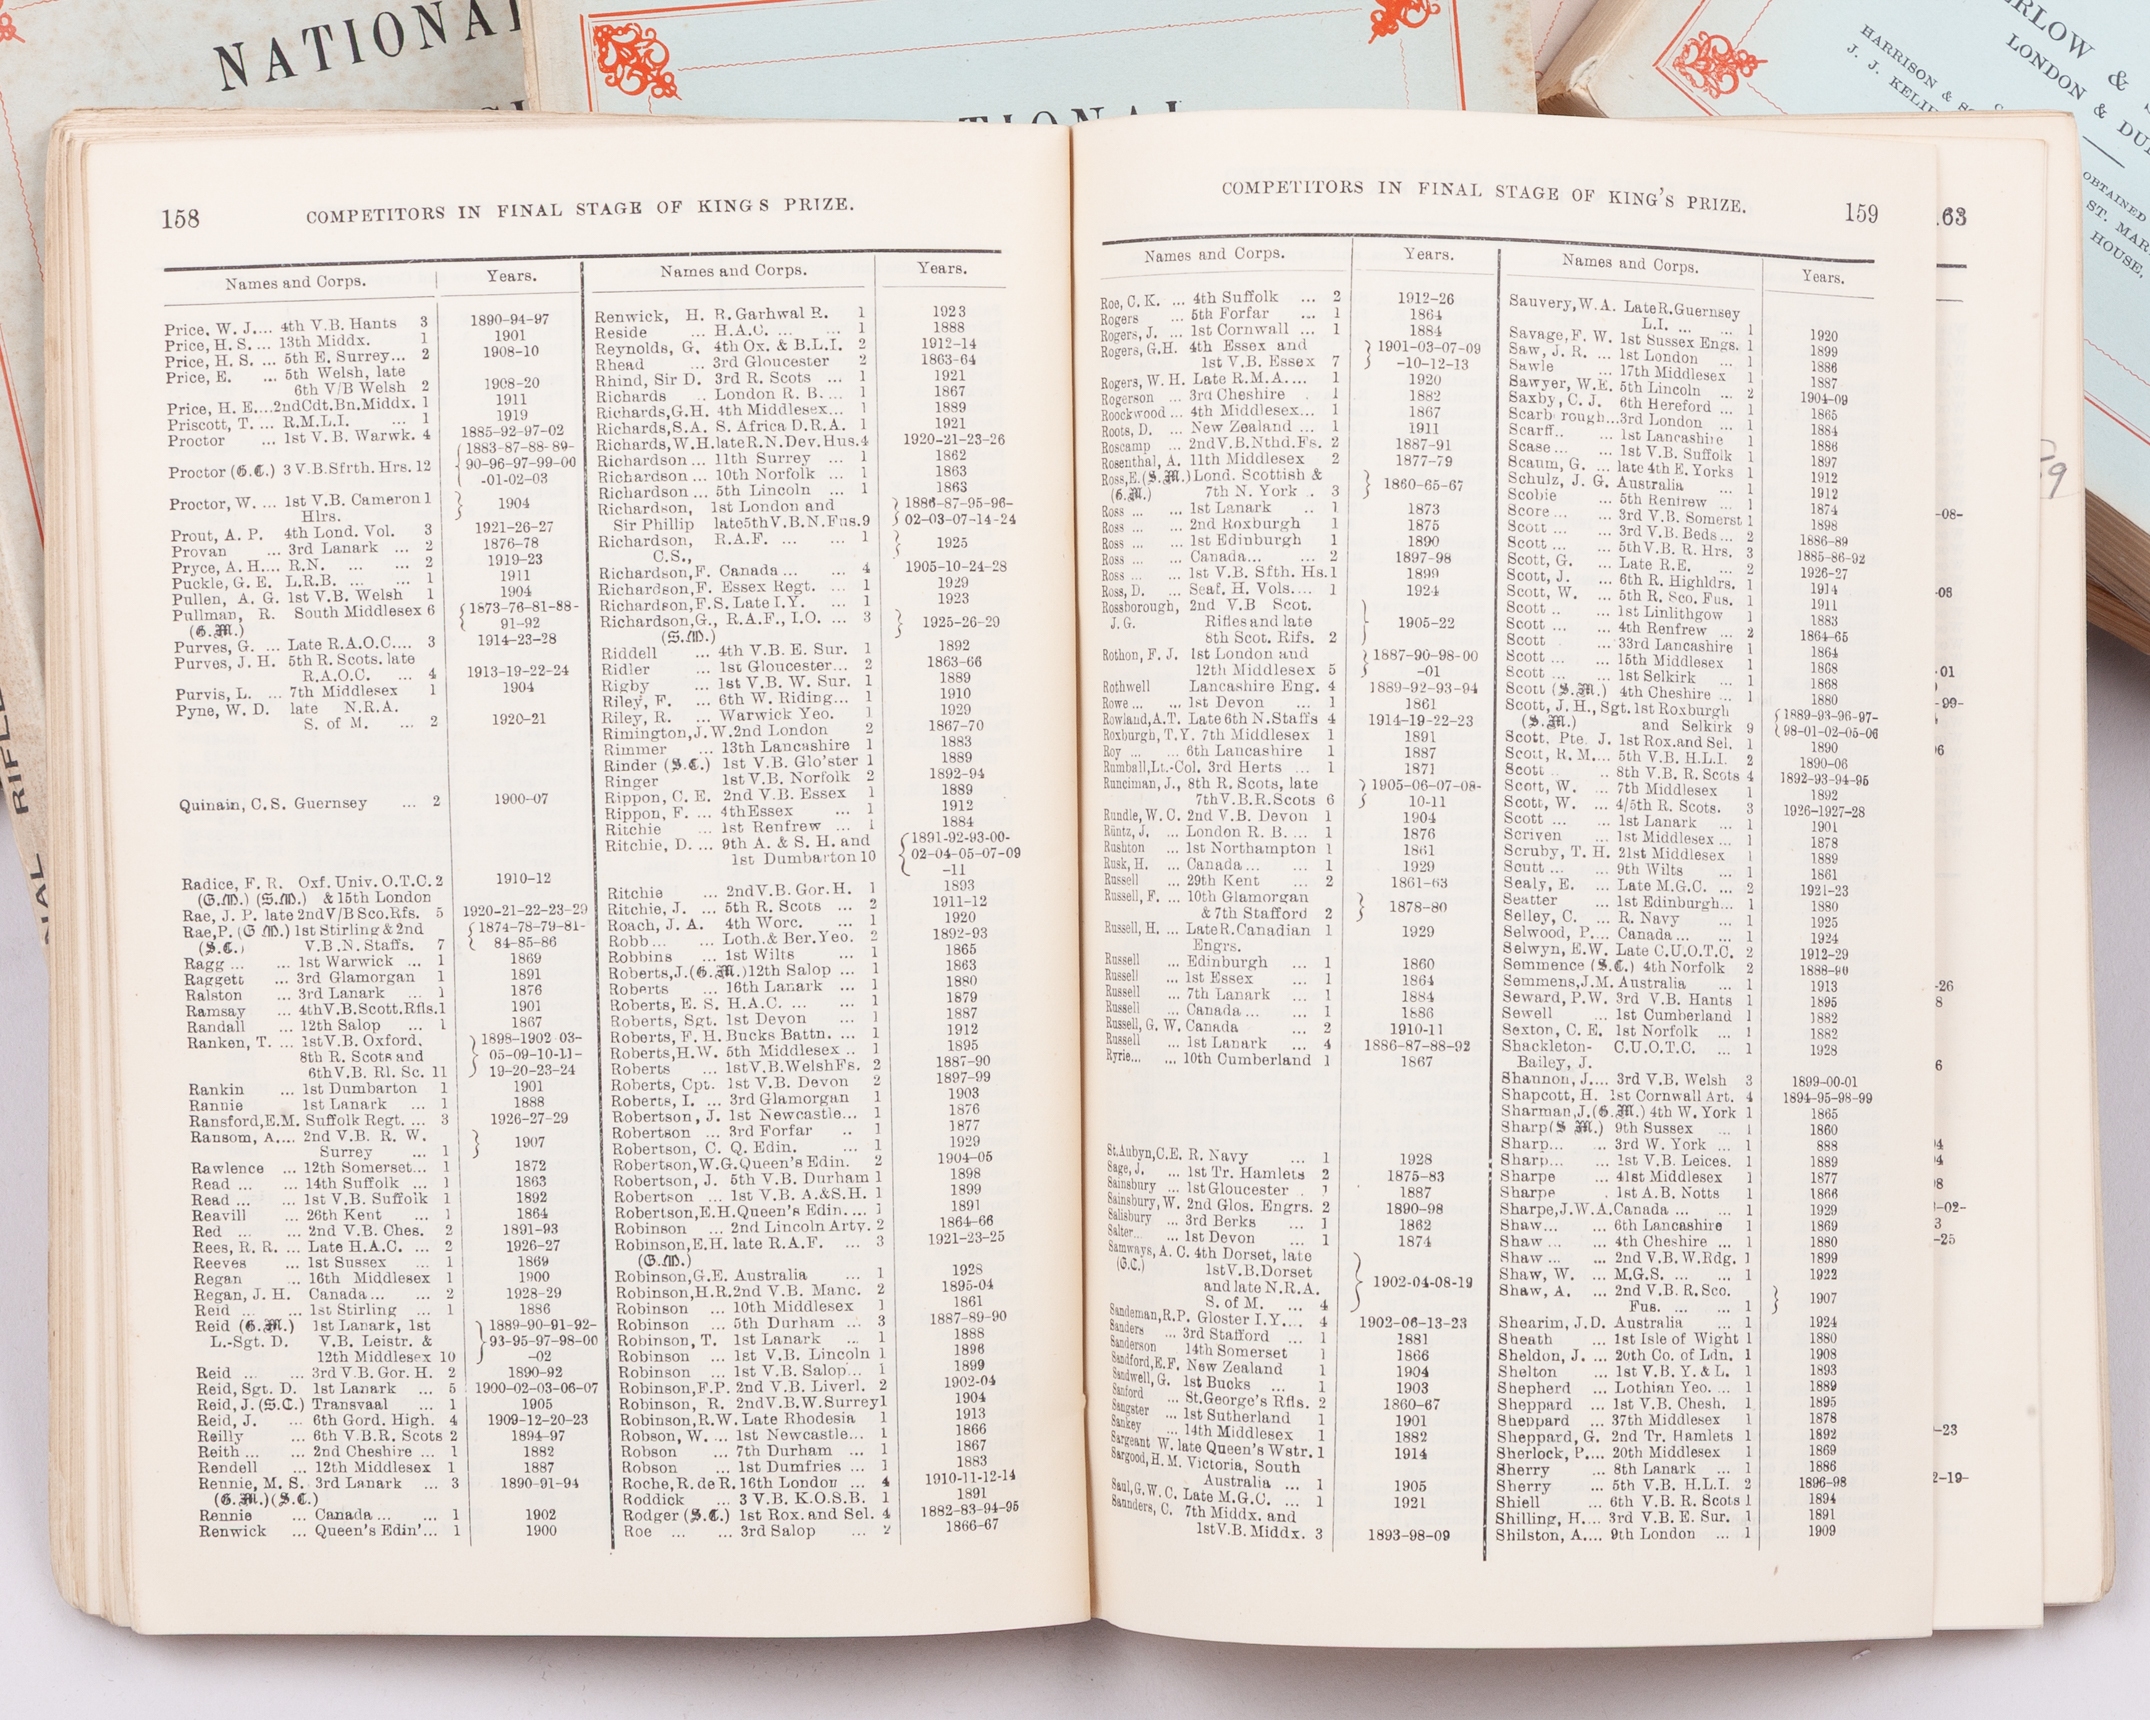 NATIONAL
NATIONAL
HARRISON & S
J. J. KELI
RLOW &
LONDON & DU
OBTAINED
ST. MAR
HOUSE,
RIFLE
158
COMPETITORS IN FINAL STAGE OF KING S PRIZE.
Names and Corps. Years.
Price, W. J.... 4th V.B. Hants 3 1890-94-97
Price, H. S. ... 13th Middx. 1 1901
Price, H. S. ... 5th E. Surrey... 2 1908-10
Price, E. ... 5th Welsh, late
6th V/B Welsh 2 1908-20
Price, H. E....2ndCdt.Bn.Middx. 1 1911
Priscott, T. ... R.M.L.I. ... 1 1919
Proctor ... 1st V.B. Warwk. 4 1885-92-97-02
Proctor (G.C.) 3 V.B.Sfrth. Hrs. 12 1883-87-88-89-
90-96-97-99-00
-01-02-03
Proctor, W. ... 1st V.B. Cameron 1 1904
Hlrs.
Prout, A. P. 4th Lond. Vol. 3 1921-26-27
Provan ... 3rd Lanark ... 2 1876-78
Pryce, A. H.... R.N. ... ... 2 1919-23
Puckle, G. E. L.R.B. ... ... 1 1911
Pullen, A. G. 1st V.B. Welsh 1 1904
Pullman, R. South Middlesex 6 1873-76-81-88-
(G.M.) 91-92
Purves, G. ... Late R.A.O.C.... 3 1914-23-28
Purves, J. H. 5th R. Scots. late
R.A.O.C. ... 4 1913-19-22-24
Purvis, L. ... 7th Middlesex 1 1904
Pyne, W. D. late N.R.A.
S. of M. ... 2 1920-21
Quinain, C.S. Guernsey ... 2 1900-07
Radice, F. R. Oxf. Univ. O.T.C. 2 1910-12
(G.M.) (S.M.) & 15th London
Rae, J. P. late 2nd V/B Sco.Rfs. 5 1920-21-22-23-29
Rae,P. (G M.) 1st Stirling & 2nd 1874-78-79-81-
(S.C.) V.B.N. Staffs. 7 84-85-86
Ragg ... ... 1st Warwick ... 1 1869
Raggett ... 3rd Glamorgan 1 1891
Ralston ... 3rd Lanark ... 1 1876
Ramsay ... 4thV.B.Scott.Rfls.1 1901
Randall ... 12th Salop ... 1 1867
Ranken, T. ... 1stV.B. Oxford, 1898-1902 03-
8th R. Scots and 05-09-10-11-
6thV.B. Rl. Sc. 11 19-20-23-24
Rankin ... 1st Dumbarton 1 1901
Rannie 1st Lanark ... 1 1888
Ransford,E.M. Suffolk Regt. ... 3 1926-27-29
Ransom, A.... 2nd V.B. R. W. 1907
Surrey ... 1
Rawlence ... 12th Somerset... 1 1872
Read ... ... 14th Suffolk ... 1 1863
Read ... ... 1st V.B. Suffolk 1 1892
Reavill ... 26th Kent ... 1 1864
Red ... ... 2nd V.B. Ches. 2 1891-93
Rees, R. R. ... Late H.A.C. ... 2 1926-27
Reeves ... 1st Sussex ... 1 1869
Regan ... 16th Middlesex 1 1900
Regan, J. H. Canada... ... 2 1928-29
Reid ... ... 1st Stirling ... 1 1886
Reid (G.M.) 1st Lanark, 1st 1889-90-91-92-
L.-Sgt. D. V.B. Leistr. & 93-95-97-98-00
12th Middlesex 10 -02
Reid ... ... 3rd V.B. Gor. H. 2 1890-92
Reid, Sgt. D. 1st Lanark ... 5 1900-02-03-06-07
Reid, J. (S.C.) Transvaal ... 1 1905
Reid, J. ... 6th Gord. High. 4 1909-12-20-23
Reilly ... 6th V.B.R. Scots 2 1894-97
Reith ... ... 2nd Cheshire ... 1 1882
Rendell ... 12th Middlesex 1 1887
Rennie, M. S. 3rd Lanark ... 3 1890-91-94
(G.M.)(S.C.)
Rennie ... Canada ... ... 1 1902
Renwick ... Queen's Edin'... 1 1900
Names and Corps. Years.
Renwick, H. R. Garhwal R. 1 1923
Reside ... H.A.C. ... ... 1 1888
Reynolds, G. 4th Ox. & B.L.I. 2 1912-14
Rhead ... 3rd Gloucester 2 1863-64
Rhind, Sir D. 3rd R. Scots ... 1 1921
Richards .. London R. B. ... 1 1867
Richards,G.H. 4th Middlesex... 1 1889
Richards,S.A. S. Africa D.R.A. 1 1921
Richards,W.H.lateR.N.Dev.Hus.4 1920-21-23-26
Richardson ... 11th Surrey ... 1 1862
Richardson ... 10th Norfolk ... 1 1863
Richardson ... 5th Lincoln ... 1 1863
Richardson, 1st London and 1886-87-95-96-
Sir Phillip late5thV.B.N.Fus.9 02-03-07-14-24
Richardson, R.A.F. ... ... 1 1925
C.S.,
Richardson,F. Canada ... ... 4 1905-10-24-28
Richardson,F. Essex Regt. ... 1 1929
Richardson,F.S. Late I.Y. ... 1 1923
Richardson,G., R.A.F., I.O. ... 3 1925-26-29
(S.M.)
Riddell ... 4th V.B. E. Sur. 1 1892
Ridler ... 1st Gloucester... 2 1863-66
Rigby ... 1st V.B. W. Sur. 1 1889
Riley, F. ... 6th W. Riding... 1 1910
Riley, R. ... Warwick Yeo. 1 1929
Rimington,J.W.2nd London 2 1867-70
Rimmer ... 13th Lancashire 1 1883
Rinder (S.C.) 1st V.B. Glo'ster 1 1889
Ringer 1st V.B. Norfolk 2 1892-94
Rippon, C. E. 2nd V.B. Essex 1 1889
Rippon, F. ... 4th Essex ... 1 1912
Ritchie ... 1st Renfrew ... 1 1884
Ritchie, D. ... 9th A. & S. H. and 1891-92-93-00-
1st Dumbarton 10 02-04-05-07-09
-11
Ritchie ... 2nd V.B. Gor. H. 1 1893
Ritchie, J. ... 5th R. Scots ... 2 1911-12
Roach, J. A. 4th Worc. ... 1 1920
Robb ... ... Loth.& Ber.Yeo. 2 1892-93
Robbins ... 1st Wilts ... 1 1865
Roberts,J.(G.M.)12th Salop ... 1 1863
Roberts ... 16th Lanark ... 1 1880
Roberts, E. S. H.A.C. ... ... 1 1879
Roberts, Sgt. 1st Devon ... 1 1887
Roberts, F. H. Bucks Battn. ... 1 1912
Roberts,H.W. 5th Middlesex .. 1 1895
Roberts ... 1stV.B.WelshFs. 2 1887-90
Roberts, Cpt. 1st V.B. Devon 2 1897-99
Roberts, I. ... 3rd Glamorgan 1 1903
Robertson, J. 1st Newcastle... 1 1876
Robertson ... 3rd Forfar .. 1 1877
Robertson, C. Q. Edin. ... 1 1929
Robertson,W.G.Queen's Edin. 2 1904-05
Robertson, J. 5th V.B. Durham 1 1898
Robertson ... 1st V.B. A.&S.H. 1 1899
Robertson,E.H.Queen's Edin. ... 1 1891
Robinson ... 2nd Lincoln Arty. 2 1864-66
Robinson,E.H. late R.A.F. ... 3 1921-23-25
(G.M.)
Robinson,G.E. Australia ... 1 1928
Robinson,H.R.2nd V.B. Manc. 2 1895-04
Robinson ... 10th Middlesex 1 1861
Robinson ... 5th Durham ... 3 1887-89-90
Robinson, T. 1st Lanark ... 1 1888
Robinson ... 1st V.B. Lincoln 1 1896
Robinson ... 1st V.B. Salop... 1 1899
Robinson,F.P. 2nd V.B. Liverl. 2 1902-04
Robinson, R. 2nd V.B.W.Surrey1 1904
Robinson,R.W. Late Rhodesia 1 1913
Robson, W. ... 1st Newcastle... 1 1866
Robson ... 7th Durham ... 1 1867
Robson ... 1st Dumfries ... 1 1883
Roche,R. de R. 16th London ... 4 1910-11-12-14
Roddick ... 3 V.B. K.O.S.B. 1 1891
Rodger (S.C.) 1st Rox. and Sel. 4 1882-83-94-95
Roe ... ... 3rd Salop ... 2 1866-67
COMPETITORS IN FINAL STAGE OF KING'S PRIZE.
159
Names and Corps. Years.
Roe, C. K. ... 4th Suffolk ... 2 1912-26
Rogers ... 5th Forfar ... 1 1864
Rogers, J. ... 1st Cornwall ... 1 1884
Rogers, G.H. 4th Essex and 1901-03-07-09
1st V.B. Essex 7 -10-12-13
Rogers, W. H. Late R.M.A.... 1 1920
Rogerson ... 3rd Cheshire . 1 1882
Roockwood ... 4th Middlesex... 1 1867
Roots, D. ... New Zealand ... 1 1911
Roscamp ... 2ndV.B.Nthd.Fs. 2 1887-91
Rosenthal, A. 11th Middlesex 2 1877-79
Ross,E.(S.M.) Lond. Scottish & 1860-65-67
(G.M.) 7th N. York . 3
Ross ... ... 1st Lanark .. 1 1873
Ross ... ... 2nd Roxburgh 1 1875
Ross ... ... 1st Edinburgh 1 1890
Ross ... ... Canada... ... 2 1897-98
Ross ... ... 1st V.B. Sfth. Hs.1 1899
Ross, D. ... Seaf. H. Vols.... 1 1924
Rossborough, 2nd V.B Scot.
J. G. Rifles and late 1905-22
8th Scot. Rifs. 2
Rothon, F. J. 1st London and 1887-90-98-00
12th Middlesex 5 -01
Rothwell Lancashire Eng. 4 1889-92-93-94
Rowe ... ... 1st Devon ... 1 1861
Rowland,A.T. Late 6th N.Staffs 4 1914-19-22-23
Roxburgh, T.Y. 7th Middlesex 1 1891
Roy ... ... 6th Lancashire 1 1887
Rumball,Lt.-Col. 3rd Herts ... 1 1871
Runciman, J., 8th R. Scots, late 1905-06-07-08-
7thV.B.R.Scots 6 10-11
Rundle, W. C. 2nd V.B. Devon 1 1904
Rüntz, J. ... London R. B. ... 1 1876
Rushton ... 1st Northampton 1 1861
Rusk, H. ... Canada ... ... 1 1929
Russell ... 29th Kent ... 2 1861-63
Russell, F. ... 10th Glamorgan 1878-80
& 7th Stafford 2
Russell, H. ... Late R.Canadian 1 1929
Engrs.
Russell ... Edinburgh ... 1 1860
Russell ... 1st Essex ... 1 1864
Russell ... 7th Lanark ... 1 1884
Russell ... Canada ... ... 1 1886
Russell, G. W. Canada ... 2 1910-11
Russell ... 1st Lanark ... 4 1886-87-88-92
Ryrie... ... 10th Cumberland 1 1867
St.Aubyn,C.E. R. Navy ... 1 1928
Sage, J. ... 1st Tr. Hamlets 2 1875-83
Sainsbury ... 1st Gloucester . 1 1887
Sainsbury, W. 2nd Glos. Engrs. 2 1890-98
Salisbury ... 3rd Berks ... 1 1862
Salter... ... 1st Devon ... 1 1874
Samways, A. C. 4th Dorset, late
(G.C.) 1st V.B. Dorset 1902-04-08-19
and late N.R.A.
S. of M. ... 4
Sandeman,R.P. Gloster I.Y.... 4 1902-06-13-23
Sanders ... 3rd Stafford ... 1 1881
Sanderson 14th Somerset 1 1866
Sandford,E.F. New Zealand 1 1904
Sandwell, G. 1st Bucks ... 1 1903
Sanford ... St.George's Rfls. 2 1860-67
Sangster ... 1st Sutherland 1 1901
Sankey ... 14th Middlesex 1 1882
Sargeant W. late Queen's Wstr. 1 1914
Sargood, H. M. Victoria, South
Australia ... 1 1905
Saul,G.W.C. Late M.G.C. ... 1 1921
Saunders, C. 7th Middx. and
1st V.B. Middx. 3 1893-98-09
Names and Corps. Years.
Sauvery, W. A. Late R.Guernsey
L.I. ... ... 1 1920
Savage, F. W. 1st Sussex Engs. 1 1899
Saw, J. R. ... 1st London ... 1 1886
Sawle ... 17th Middlesex 1 1887
Sawyer, W.E. 5th Lincoln ... 2 1904-09
Saxby, C. J. 6th Hereford ... 1 1865
Scarb rough...3rd London ... 1 1884
Scarff.. ... 1st Lancashire 1 1886
Scase ... ... 1st V.B. Suffolk 1 1897
Scaum, G. ... late 4th E. Yorks 1 1912
Schulz, J. G. Australia ... 1 1912
Scobie ... 5th Renfrew ... 1 1874
Score ... ... 3rd V.B. Somerst 1 1898
Scott ... ... 3rd V.B. Beds... 2 1886-89
Scott ... ... 5th V.B. R. Hrs. 3 1885-86-92
Scott, G. ... Late R.E. ... 2 1926-27
Scott, J. ... 6th R. Highldrs. 1 1914
Scott, W. ... 5th R. Sco. Fus. 1 1911
Scott .. ... 1st Linlithgow 1 1883
Scott ... ... 4th Renfrew ... 2 1864-65
Scott ... 33rd Lancashire 1 1864
Scott ... ... 15th Middlesex 1 1868
Scott ... ... 1st Selkirk ... 1 1868
Scott (S.M.) 4th Cheshire ... 1 1880
Scott, J. H., Sgt. 1st Roxburgh 1889-93-96-97-
(S.M.) and Selkirk 9 98-01-02-05-06
Scott, Pte. J. 1st Rox.and Sel. 1 1890
Scott, R. M... 5th V.B. H.L.I. 2 1890-06
Scott .. .. 8th V.B. R. Scots 4 1892-93-94-95
Scott, W. ... 7th Middlesex 1 1892
Scott, W. ... 4/5th R. Scots. 3 1926-1927-28
Scott ... ... 1st Lanark ... 1 1901
Scriven ... 1st Middlesex ... 1 1878
Scruby, T. H. 21st Middlesex 1 1889
Scutt ... ... 9th Wilts ... 1 1861
Sealy, E. ... Late M.G.C. ... 2 1921-23
Seatter ... 1st Edinburgh... 1 1880
Selley, C. ... R. Navy ... 1 1925
Selwood, P.... Canada ... ... 1 1924
Selwyn, E.W. Late C.U.O.T.C. 2 1912-29
Semmence (S.C.) 4th Norfolk 2 1888-90
Semmens,J.M. Australia ... 1 1913
Seward, P.W. 3rd V.B. Hants 1 1895
Sewell ... 1st Cumberland 1 1882
Sexton, C. E. 1st Norfolk ... 1 1882
Shackleton- C.U.O.T.C. ... 1 1928
Bailey, J.
Shannon, J.... 3rd V.B. Welsh 3 1899-00-01
Shapcott, H. 1st Cornwall Art. 4 1894-95-98-99
Sharman,J.(G.M.) 4th W. York 1 1865
Sharp(S M.) 9th Sussex ... 1 1860
Sharp... ... 3rd W. York ... 1 888
Sharp... ... 1st V.B. Leices. 1 1889
Sharpe ... 41st Middlesex 1 1877
Sharpe . 1st A.B. Notts 1 1866
Sharpe,J.W.A.Canada ... ... 1 1929
Shaw... ... 6th Lancashire 1 1869
Shaw ... ... 4th Cheshire ... 1 1880
Shaw ... ... 2nd V.B.W.Rdg. 1 1899
Shaw, W. ... M.G.S. ... ... 1 1922
Shaw, A. ... 2nd V.B. R. Sco. 1907
Fus. ... ... 1
Shearim, J.D. Australia ... 1 1924
Sheath ... 1st Isle of Wight 1 1880
Sheldon, J. ... 20th Co. of Ldn. 1 1908
Shelton ... 1st V.B. Y. & L. 1 1893
Shepherd ... Lothian Yeo. ... 1 1889
Sheppard ... 1st V.B. Chesh. 1 1895
Sheppard ... 37th Middlesex 1 1878
Sheppard, G. 2nd Tr. Hamlets 1 1892
Sherlock, P.... 20th Middlesex 1 1869
Sherry ... 8th Lanark ... 1 1886
Sherry ... 5th V.B. H.L.I. 2 1896-98
Shiell ... 6th V.B. R. Scots 1 1894
Shilling, H.... 3rd V.B. E. Sur. 1 1891
Shilston, A.... 9th London ... 1 1909
63